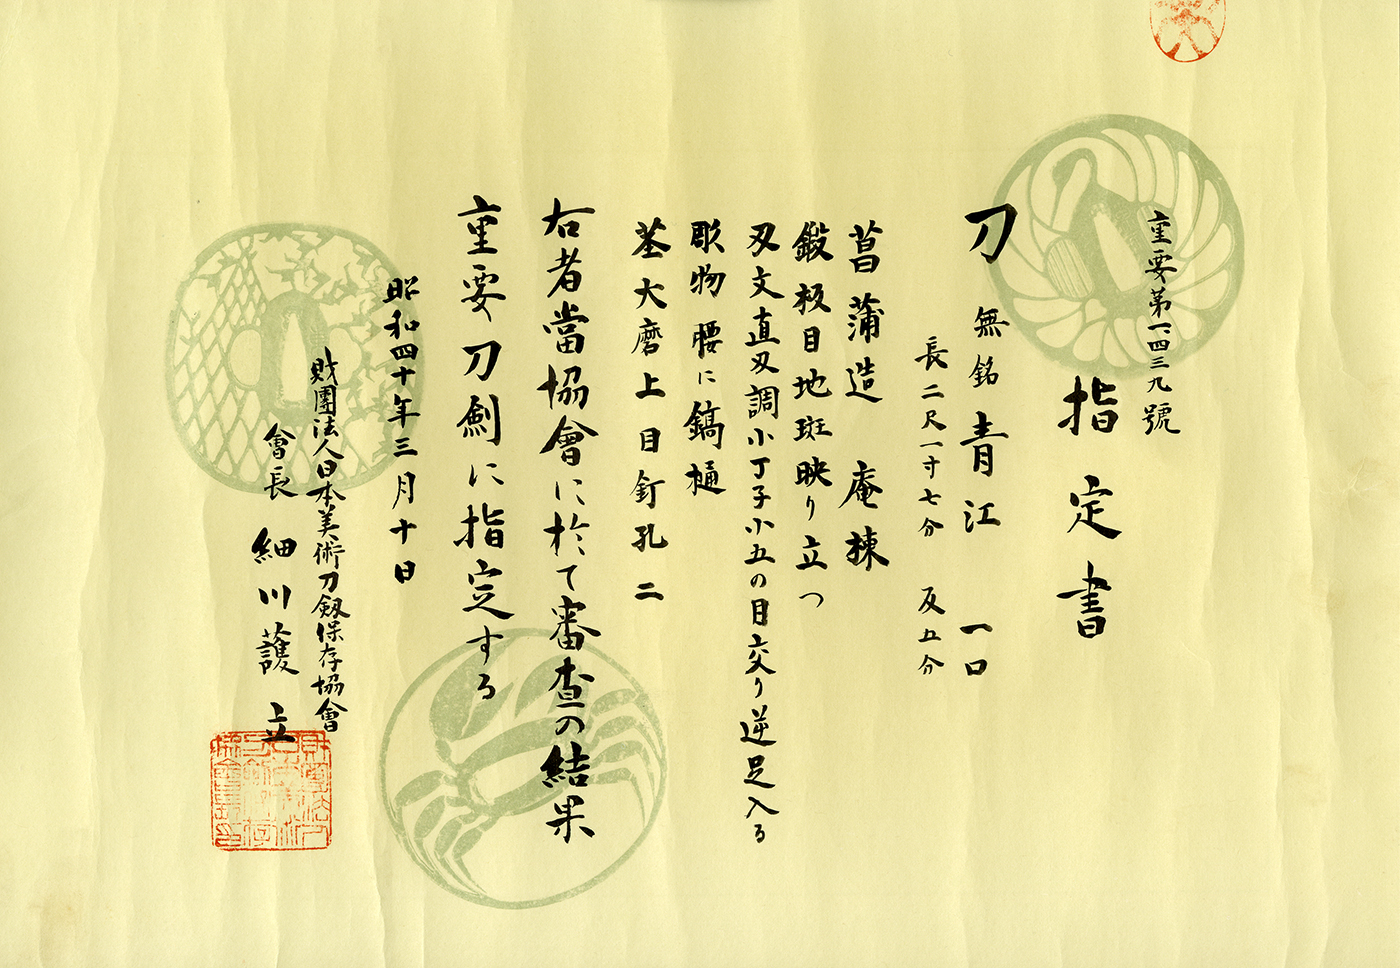 重要第一、四三九號
指定書
刀 無銘 青江 一口
長二尺一寸七分 反五分
菖蒲造 庵棟
鍛板目地斑映り立つ
刃文直刃調小丁子小五の目交り逆足入る
彫物 腰に鎬樋
茎大磨上目釘孔二
右者當協會に於て審査の結果
重要刀劍に指定する
昭和四十年三月十日
財團法人日本美術刀剱保存協會
會長 細川護立